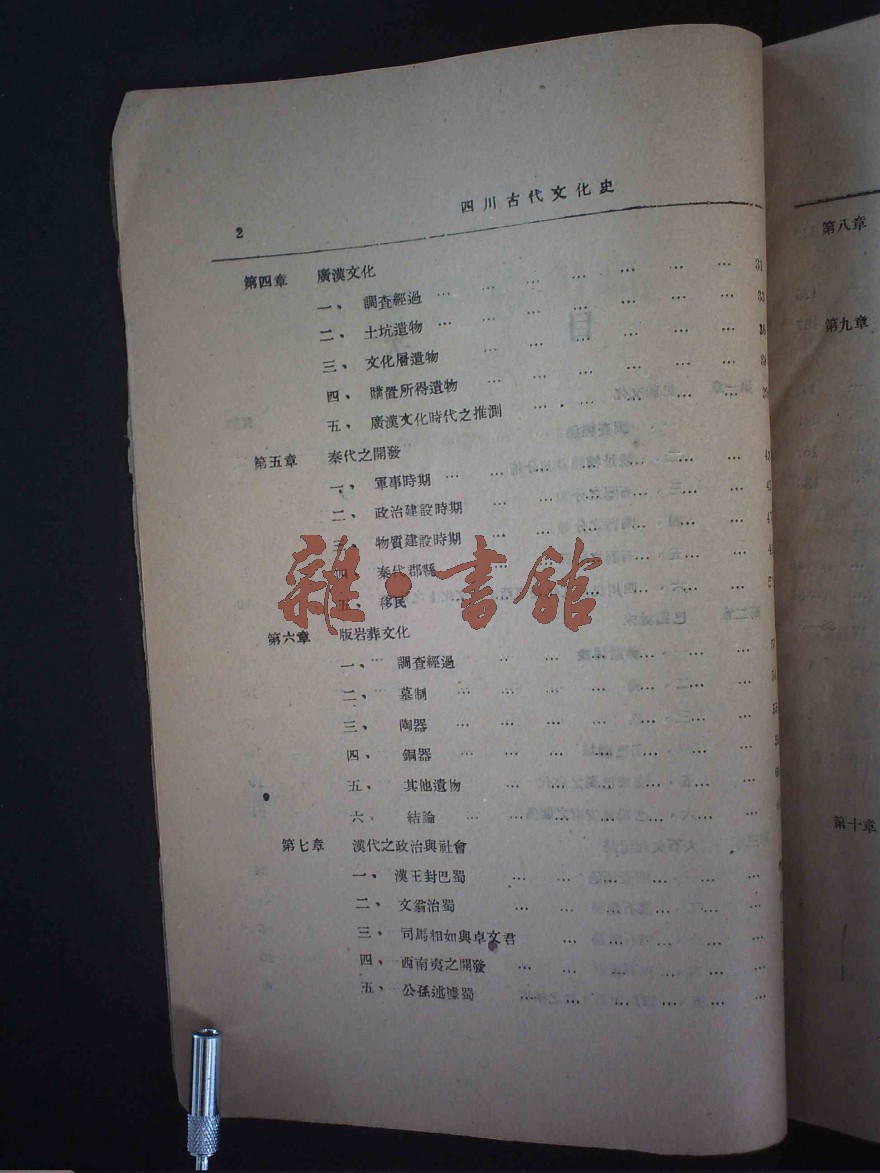 2
四川古代文化史
第四章 廣漢文化 … … … … … … … 31
一、 調查經過 … … … … … … … 33
二、 土坑遺物 … … … … … … …
三、 文化層遺物 … … … … … …
四、 購置所得遺物 … … … … …
五、 廣漢文化時代之推測 … … … … …
第五章 秦代之開發
一、 軍事時期 … … … … … …
二、 政治建設時期 … … … … … 47
三、 物質建設時期 … … … … …
四、 秦代郡縣 … … … … …
五、 移民
第六章 版岩葬文化
一、 調查經過 … … … … …
二、 墓制 … … … … … …
三、 陶器 … … … … … …
四、 銅器 … … … … … …
五、 其他遺物 … … … … …
六、 結論 … … … … … …
第七章 漢代之政治與社會
一、 漢王封巴蜀 … … … … …
二、 文翁治蜀 … … … … …
三、 司馬相如與卓文君 … … … …
四、 西南夷之開發 … … … … …
五、 公孫述據蜀 … … … … …
第八章
第九章
第十章
雜·書館